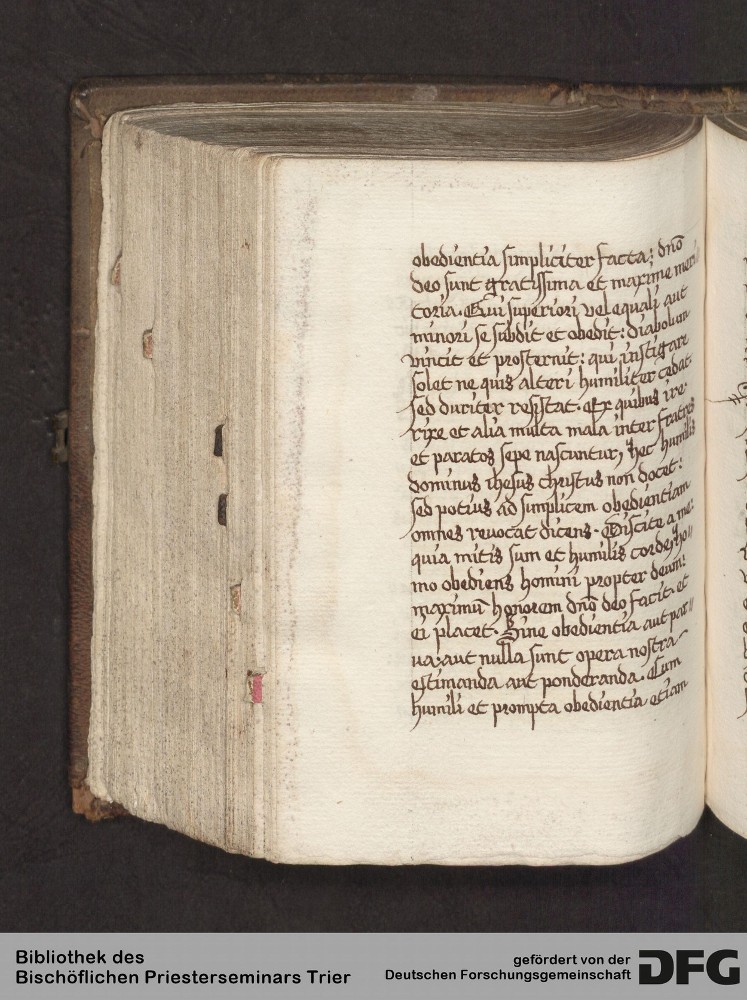 obedientia simpliciter facta: dnō
deo sunt gratissima et maxime meri
toria. Qui superiori vel equali aut
minori se subdit et obedit: diabolum
vincit et prosternit: qui instigare
solet ne quis alteri humiliter cedat
sed duriter resistat. Ex quibus ire
rixe et alia multa mala inter fratres
et paratos sepe nascuntur, hec humilis
dominus ihesus christus non docet:
sed potius ad simplicem obedientiam
omnes revocat dicens. Discite a me:
quia mitis sum et humilis corde, ho//
mo obediens homini propter deum:
maximū honorem dnō deo facit. et
ei placet. Sine obedientia aut par//
ua: aut nulla sunt opera nostra
estimanda aut ponderanda. Cum
humili et prompta obedientia etiam
Bibliothek des
Bischöflichen Priesterseminars Trier
gefördert von der
Deutschen Forschungsgemeinschaft
DFG